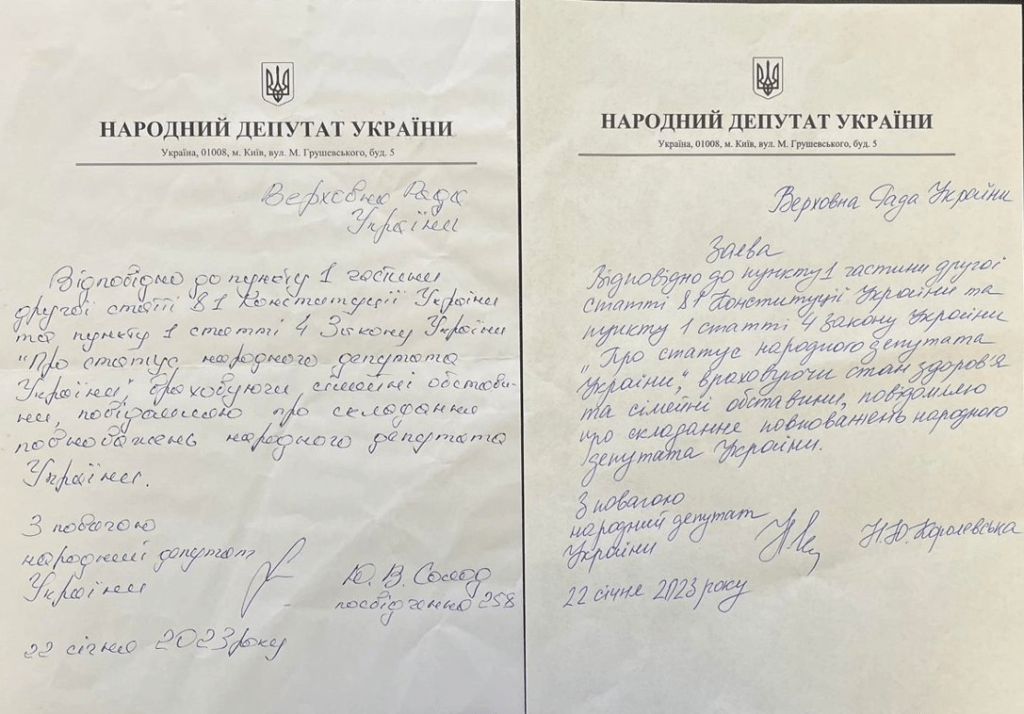 НАРОДНИЙ ДЕПУТАТ УКРАЇНИ
Україна, 01008, м. Київ, вул. М. Грушевського, буд. 5
Верховна Рада
України
Відповідно до пункту 1 частини
другої статті 81 Конституції України
та пункту 1 статті 4 Закону України
"Про статус народного депутата
України", враховуючи сімейні обстави-
ни, повідомляю про складання
повноважень народного депутата
України.
З повагою
народний депутат
України
Ю. В. Солод
посвідчення 258
22 січня 2023 року
НАРОДНИЙ ДЕПУТАТ УКРАЇНИ
Україна, 01008, м. Київ, вул. М. Грушевського, буд. 5
Верховна Рада України
Заява
Відповідно до пункту 1 частини другої
статті 81 Конституції України та
пункту 1 статті 4 Закону України
"Про статус народного депутата
України", враховуючи стан здоров'я
та сімейні обставини, повідомляю
про складання повноважень народного
депутата України.
З повагою
народний депутат
України
Н.Ю. Королевська
22 січня 2023 року